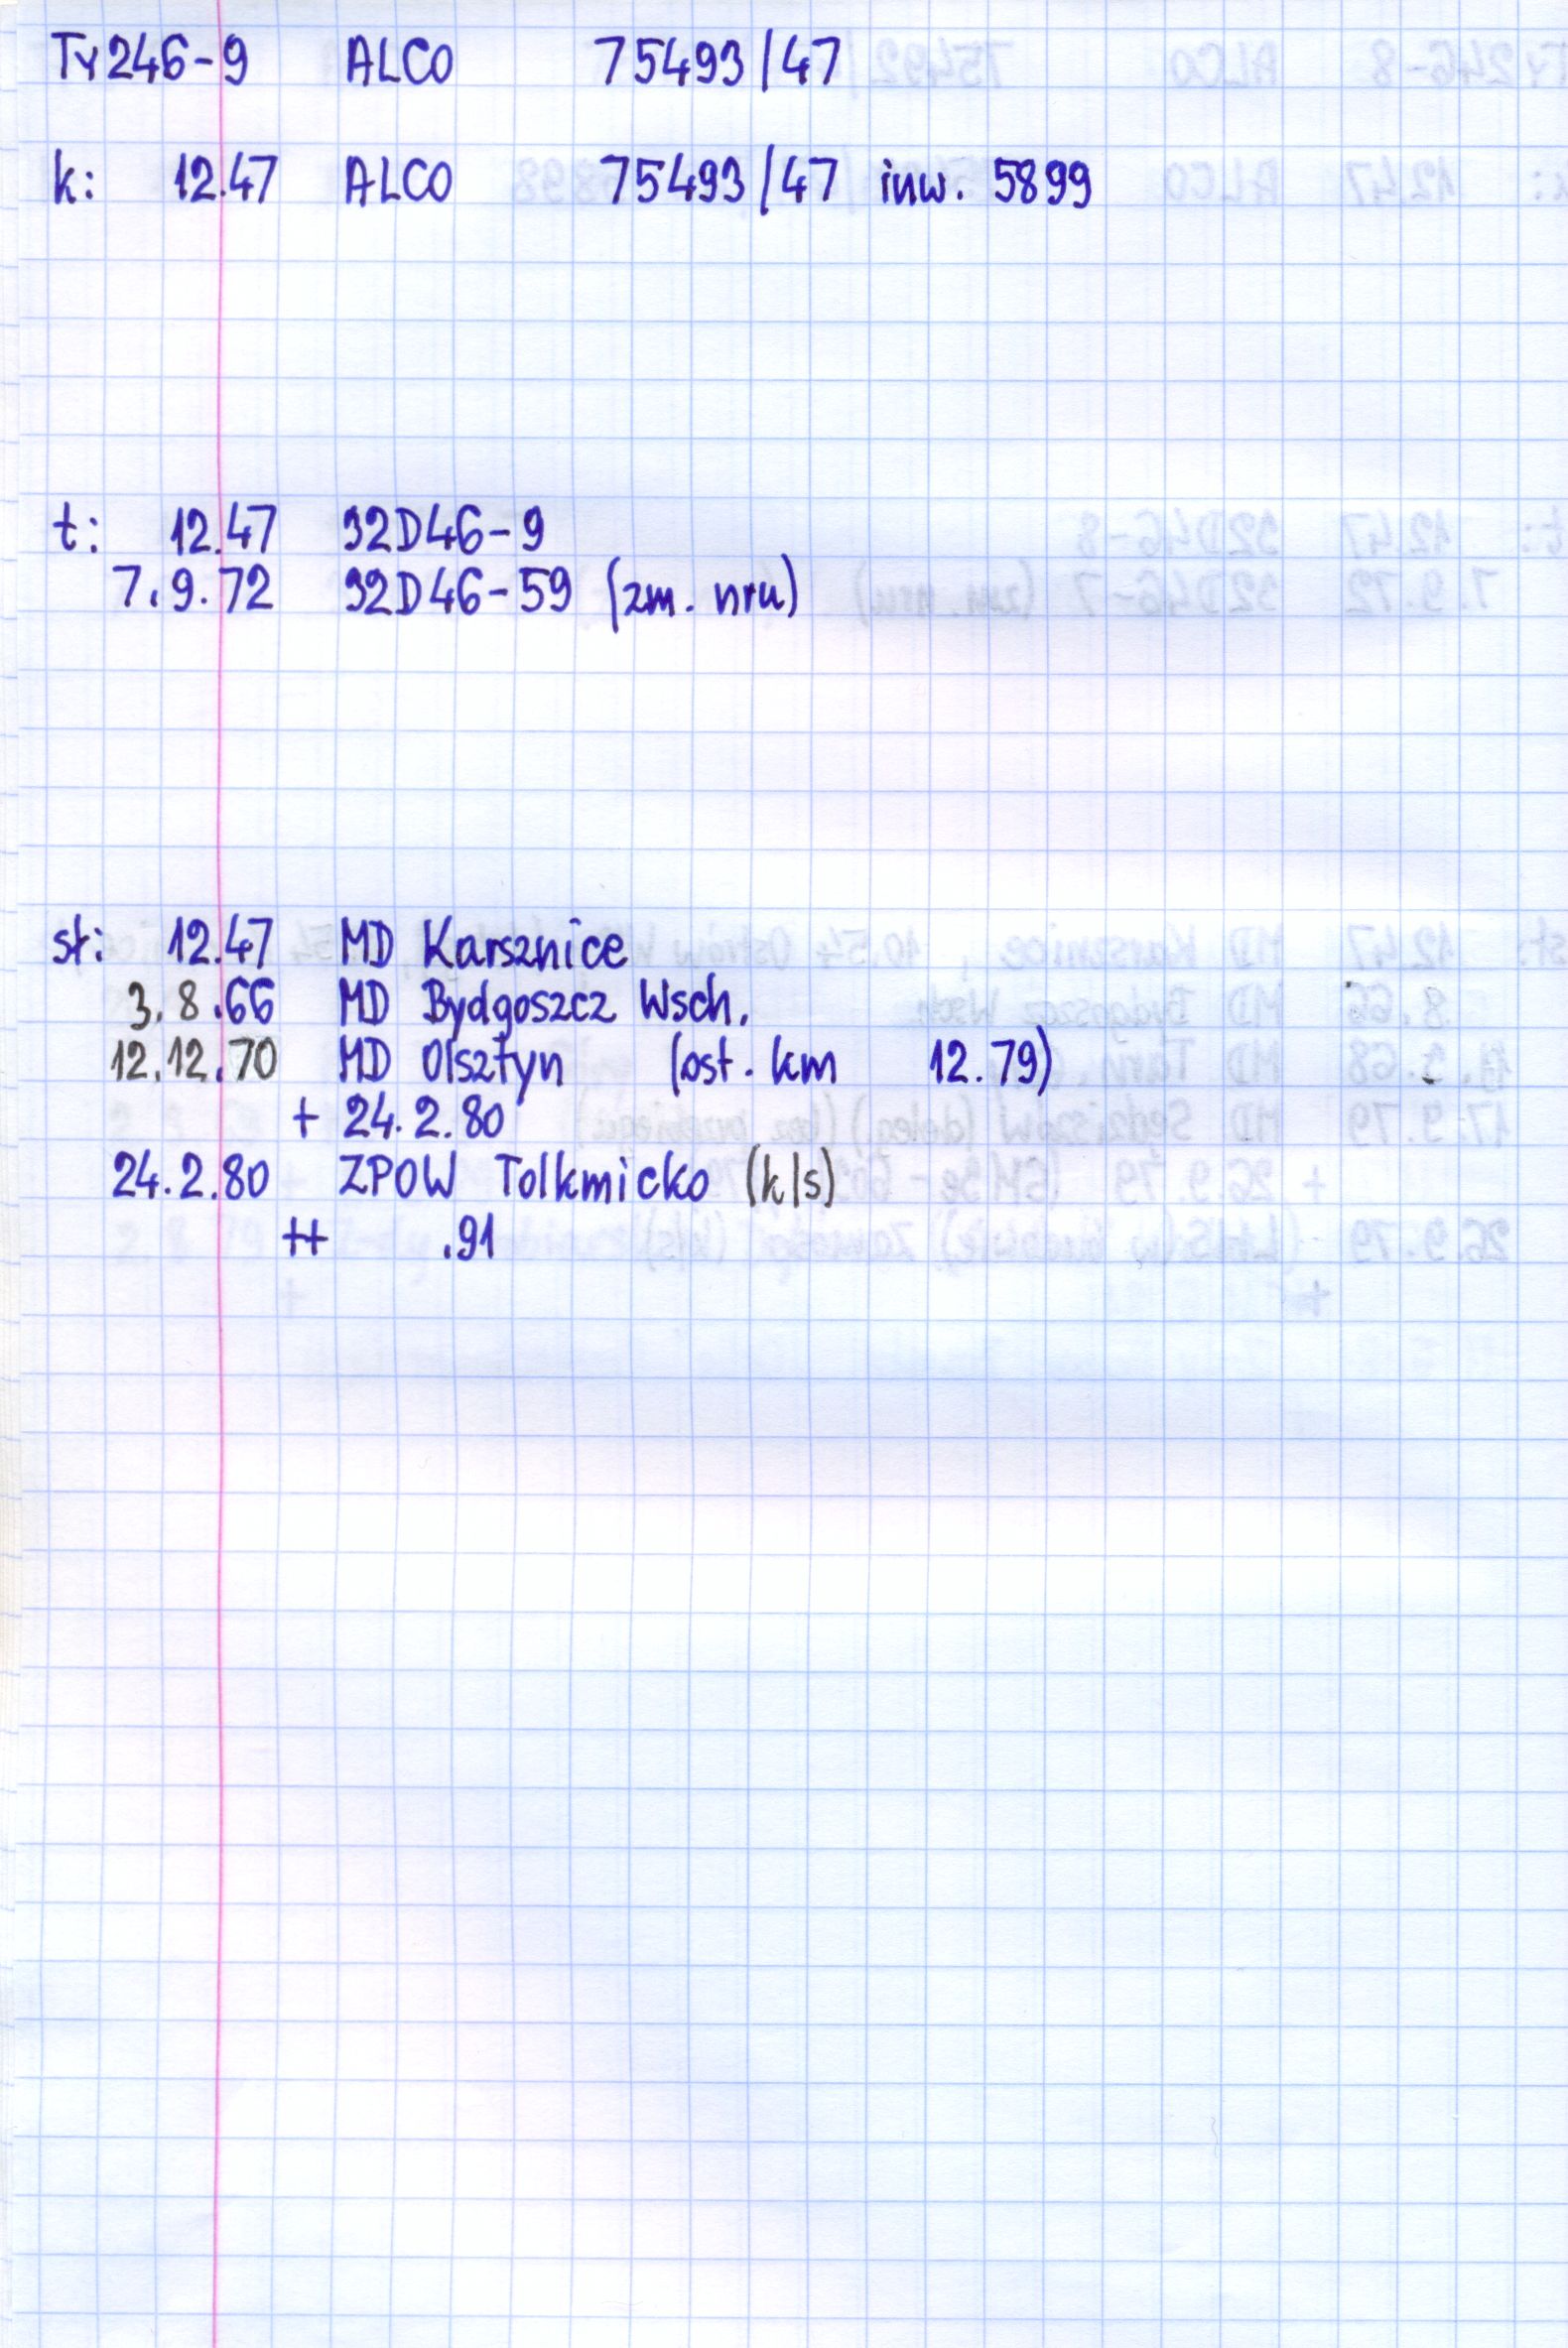 Ty246-9 ALCO 75493/47
k: 12.47 ALCO 75493/47 inw. 5899
t: 12.47 32D46-9
7.9.72 32D46-59 (zm. nru)
st: 12.47 MD Karsznice
3.8.66 MD Bydgoszcz Wsch.
12.12.70 MD Olsztyn (ost. km 12.79)
+ 24.2.80
24.2.80 ZPOW Tolkmicko (k/s)
++ .91